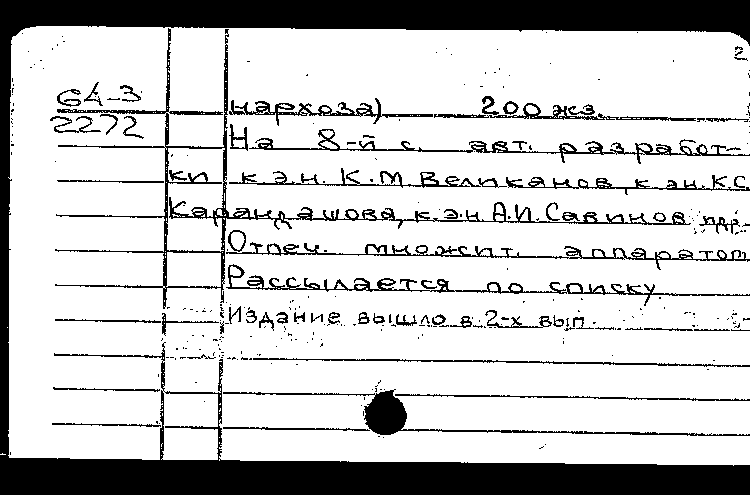 2
64-3
2272
нархоза) 200 экз.
На 8-й с. авт. разработ-
ки к.э.н. К.М Великанов, к.эн. К.С.
Карандашова, к.э.н А.И. Савинов, и др.
Отпеч. множит. аппаратом
Рассылается по списку.
Издание вышло в 2-х вып.